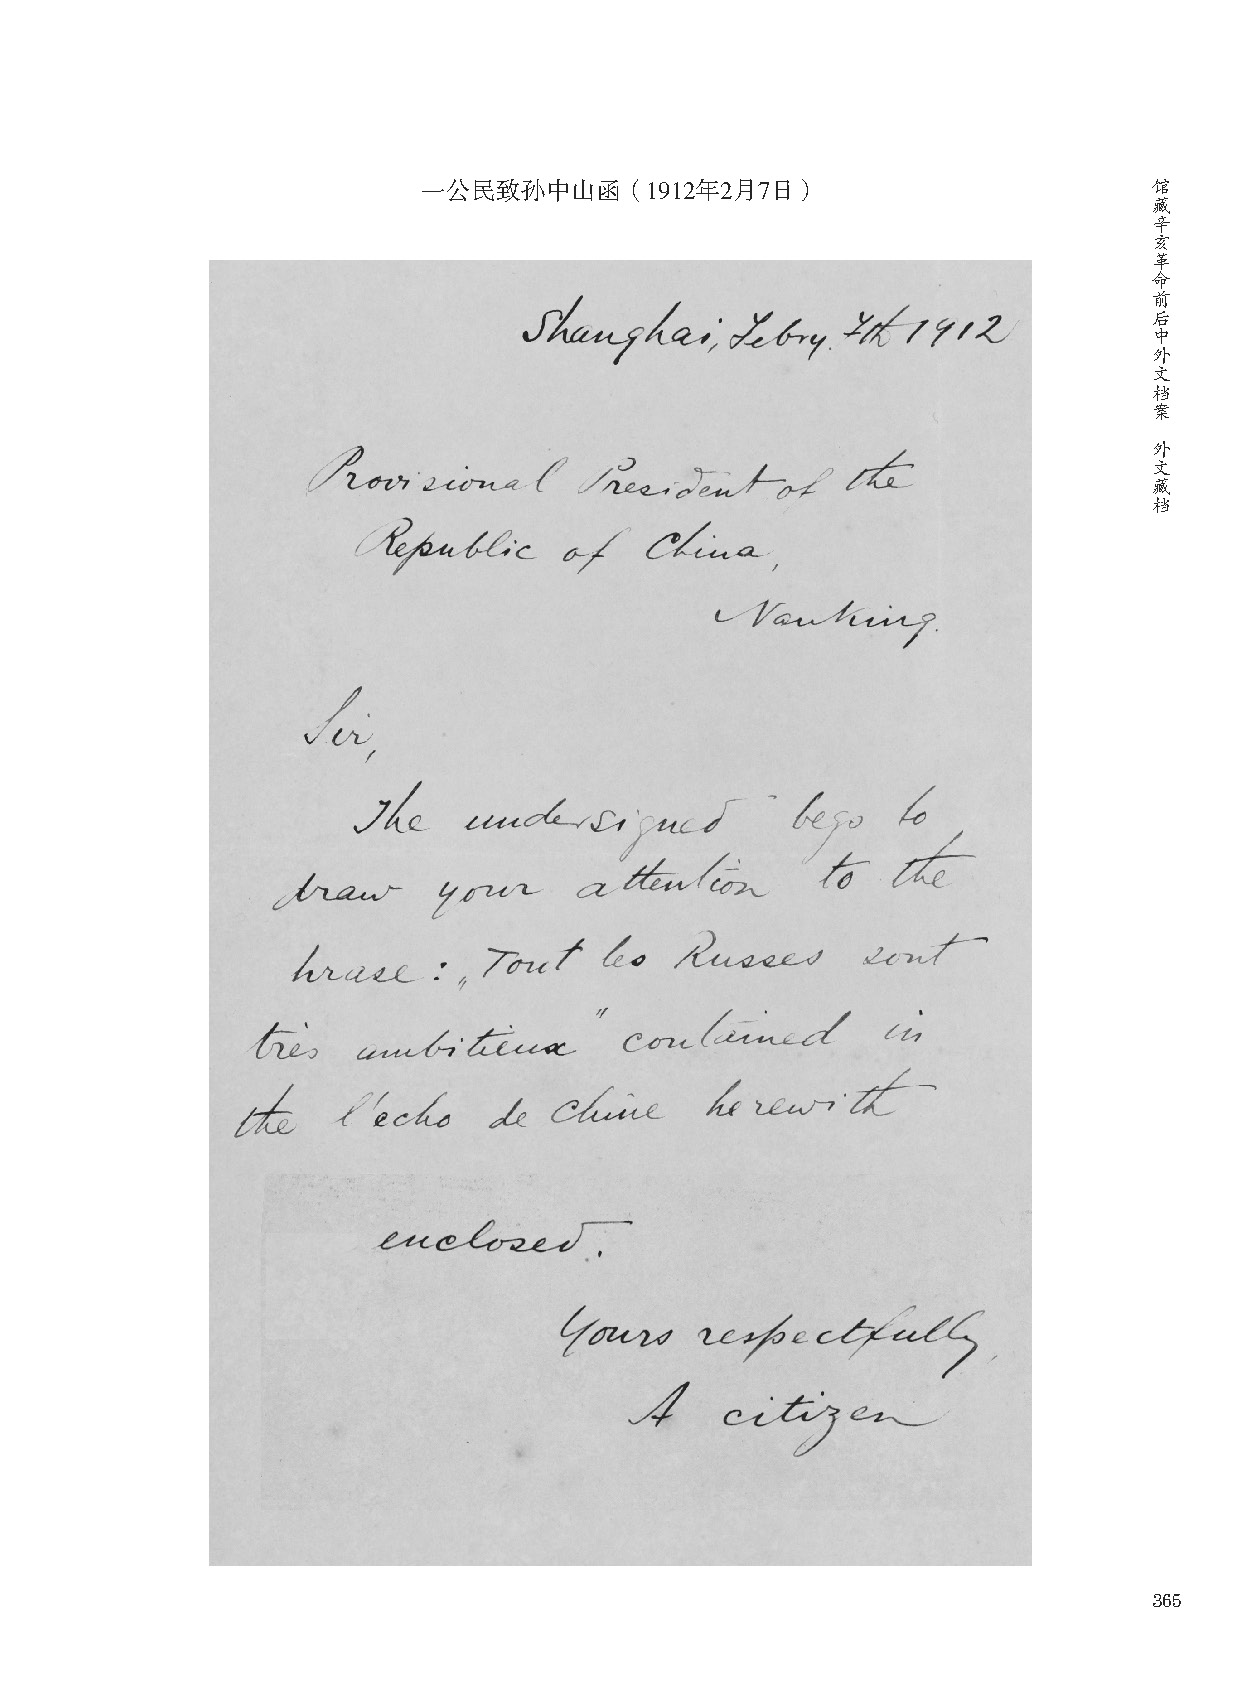 一公民致孙中山函（1912年2月7日）
Shanghai, Febry. 7th 1912
Provisional President of the
Republic of China,
Nanking.
Sir,
The undersigned begs to
draw your attention to the
hrase: „Tout les Russes sont
très ambitieux" contained in
the l'echo de Chine herewith
enclosed.
Yours respectfully,
A citizen
馆藏辛亥革命前后中外文档案 外文藏档
365